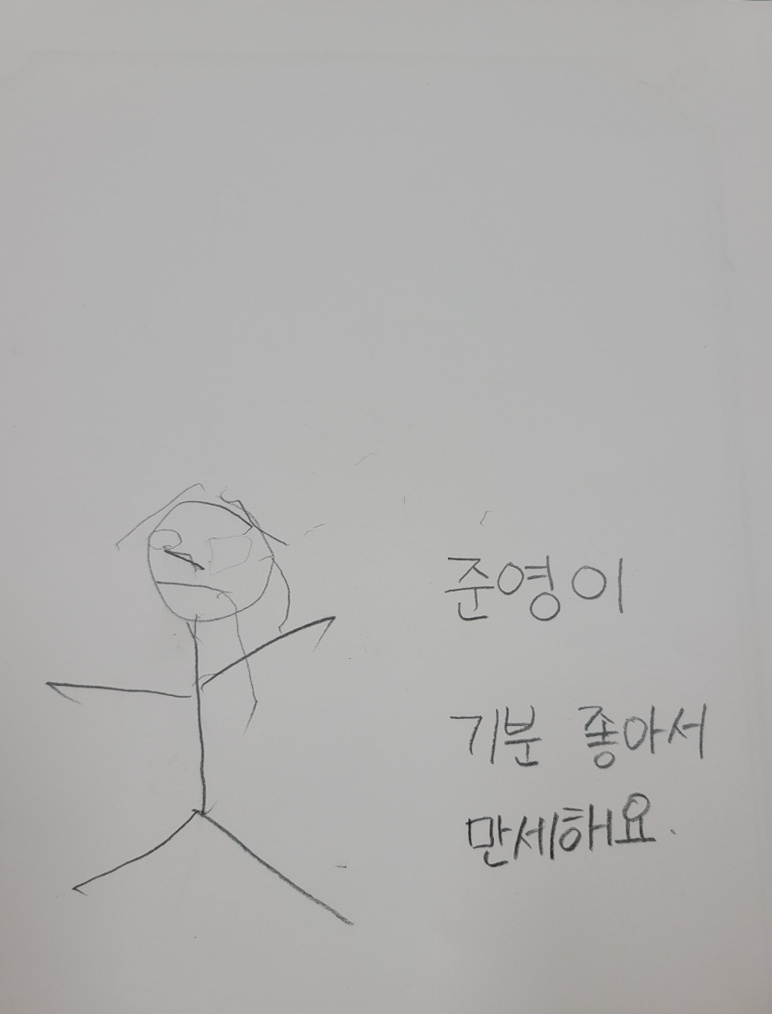 준영이
기분 좋아서
만세해요.